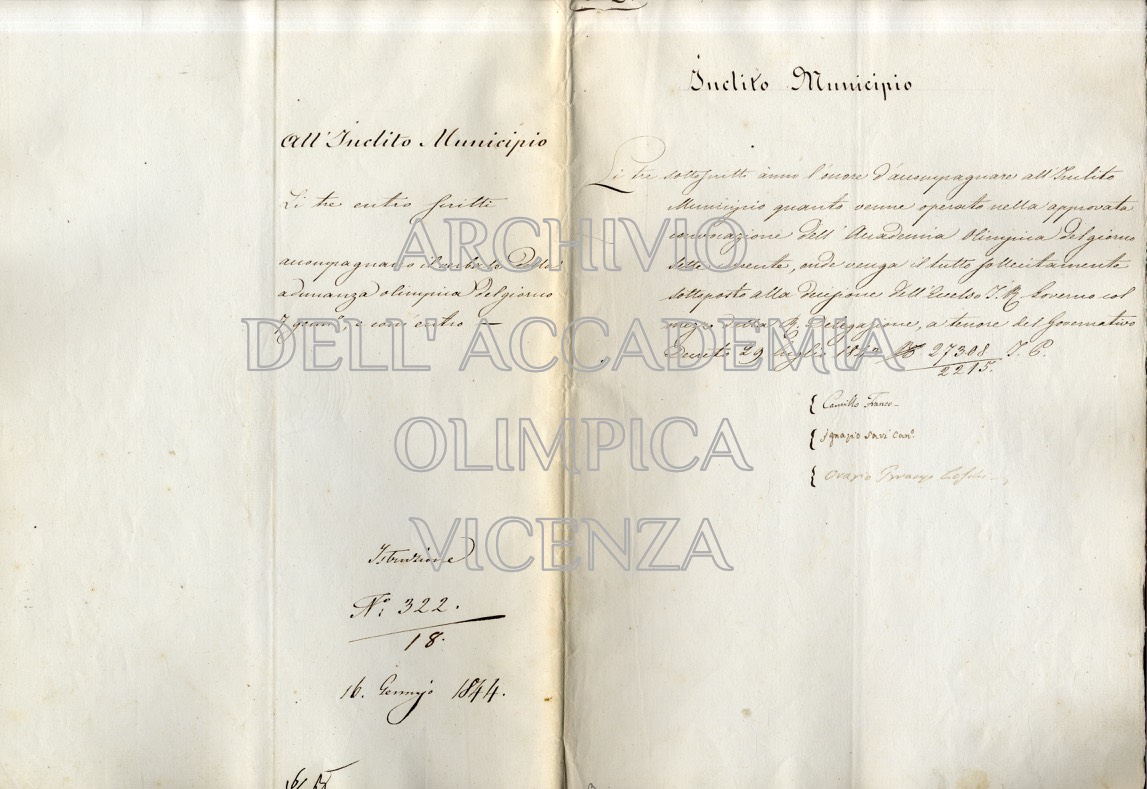 All'Inclito Municipio
Li tre entro scritti
accompagnano il verbale della
adunanza olimpica del giorno
7 genn.º e con entro —
Istruzione
Nº. 322.
18.
16. Gennajo 1844.
Inclito Municipio
Li tre sottoscritti ànno l'onore d'accompagnare all'Inclito
Municipio quanto venne operato nella approvata
convocazione dell'Accademia Olimpica del giorno
sette corrente, onde venga il tutto sollecitamente
sottoposto alla decisione dell'Eccelso I. R. Governo col
mezzo della R. Delegazione, a tenore del Governativo
Decreto 29 Luglio 27308
2215.
Camillo Franco
Ignazio Savi Can.º
Orazio
ARCHIVIO
DELL'ACCADEMIA
OLIMPICA
VICENZA